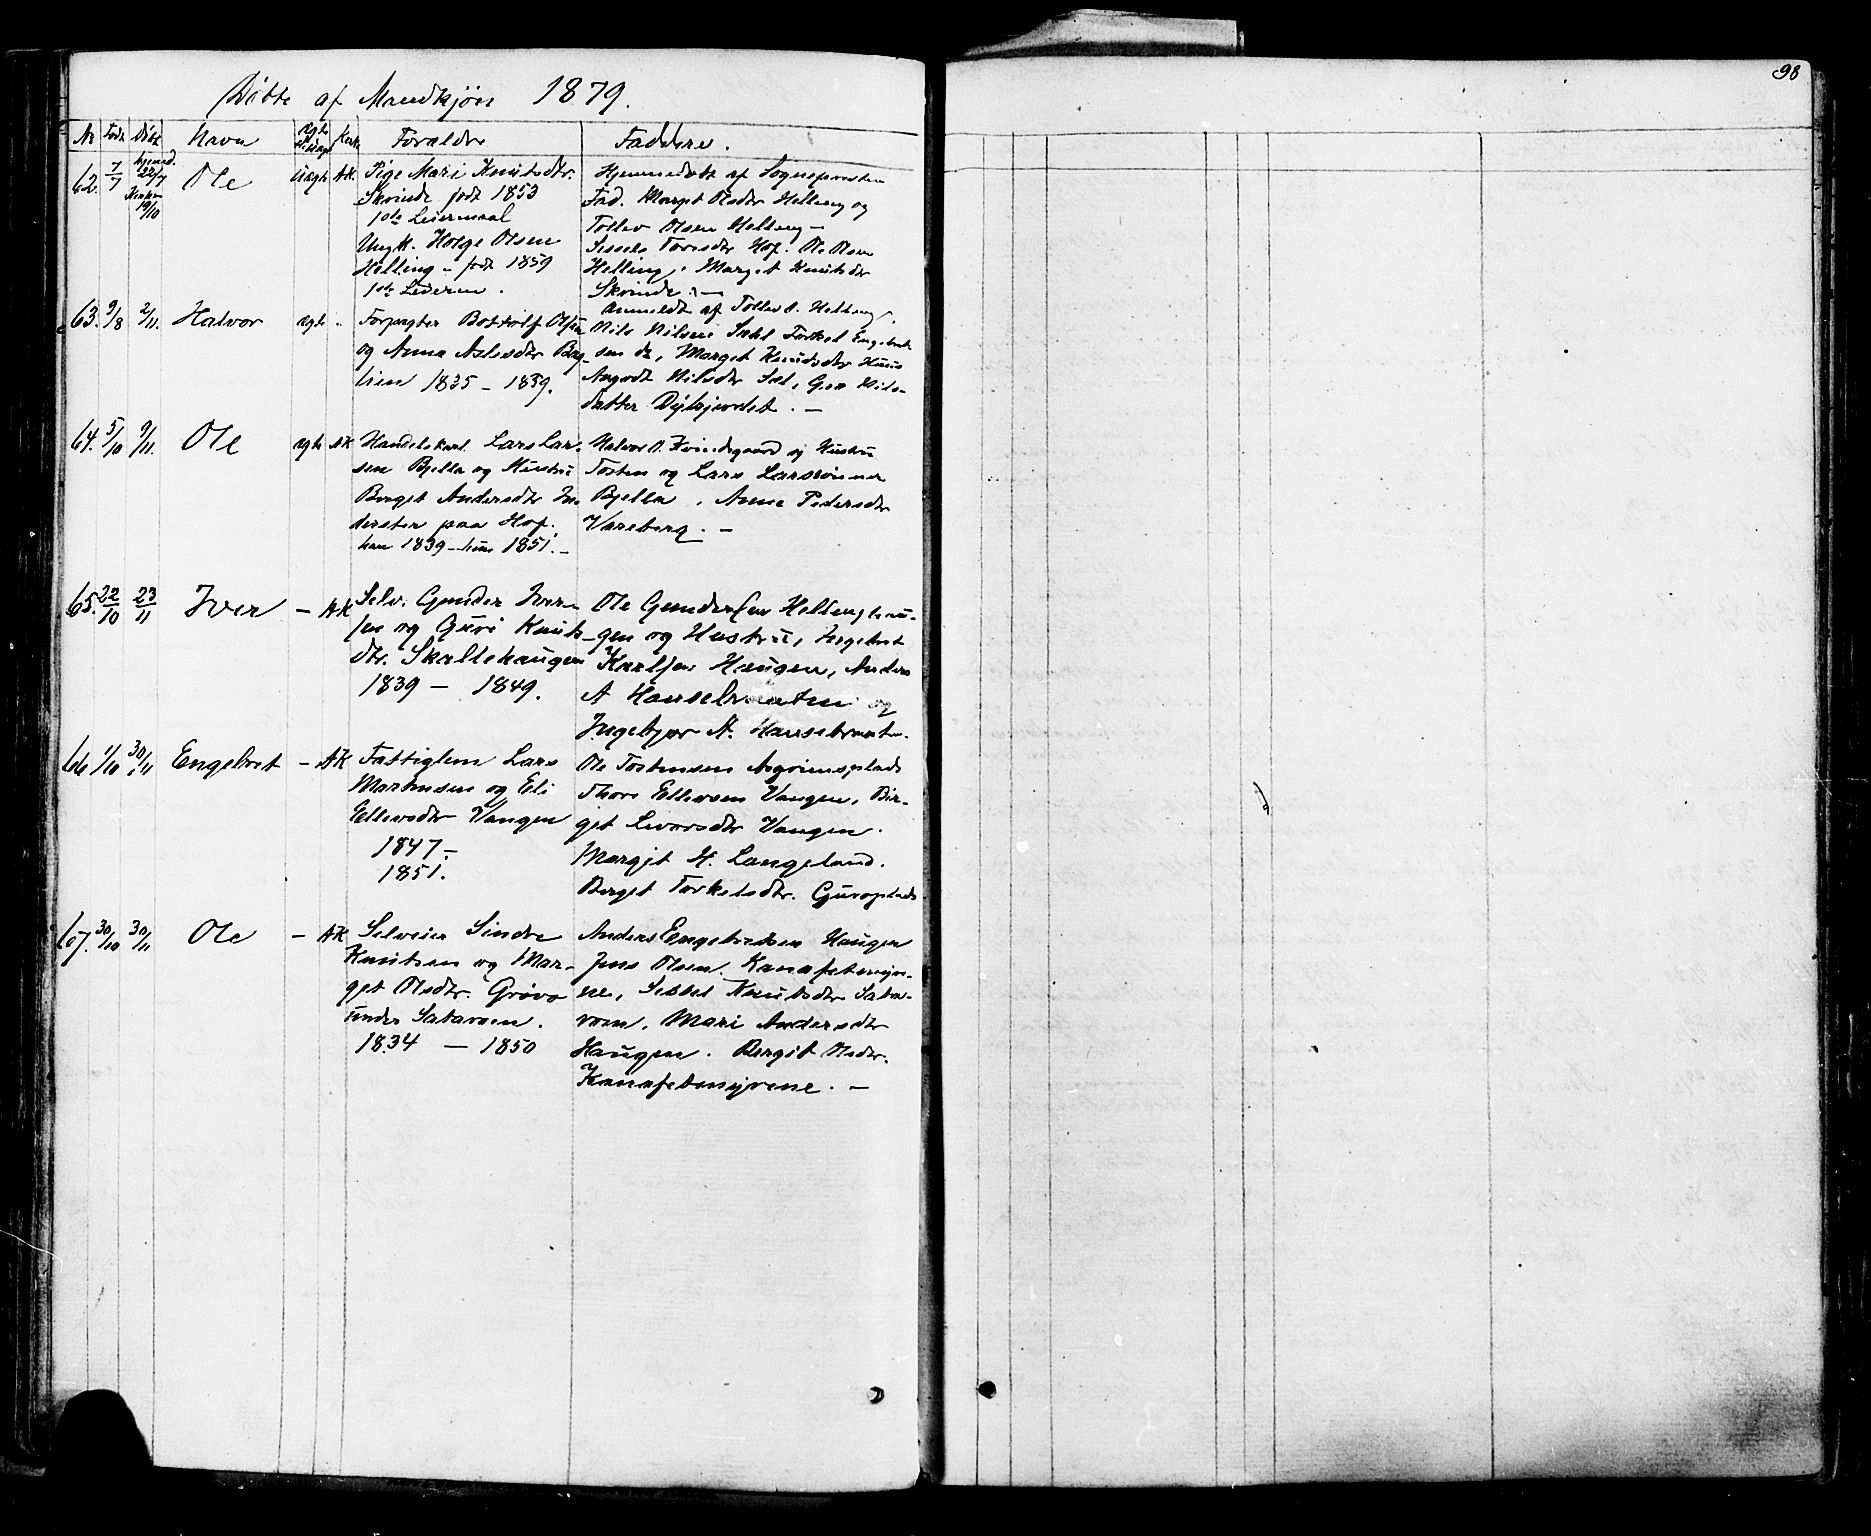 98
Døbte af Mandkjøn 1879.
Nr Født Døbt Navn Ægte Uægte Kirke Forældre Faddere.
62. 7/7 hjemmed. 22/7 Kirken 19/10 Ole Uægte AK.
Pige Mari Knutsdtr.
Skvinde født 1853
1ste Leiermaal
Ungk. Holge Olsen
Helling - født 1859
1ste Leierm.
Hjemmedøbt af Sognepresten
Fad. Marget Olsdtr Helling og
Tollev Olsen Helling -
Sissels Toresdtr Hof. Ole Olsen
Helling. Marget Knutsdtr
Skvinde. -
Anmeldt af Tollev O. Helling.
63. 9/8 2/11. Halvor ægte "
Forpagter Bottolf Olsen
og Anna Aslesdtr
lien 1835 - 1839.
Nils Nilsen Sæl Torkel Engebret-
sen do, Marget Knudsdtr
Nilsdtr Sæl, Nils-
datter .-
64. 5/10 9/11. Ole ægte AK
Handelskarl Lars Lar-
sen Bjella og Hustru
Berget Andersdtr In-
derster paa Hof.
han 1839 - hun 1851. -
Halvor O. og Hustru
Tosten og Lars Larssønner
Bjella, Anne Pedersdtr
Vareberg. -
65. 22/10 23/11 Iver - AK
Selv. Gunder Iver-
sen og Guri Knuts-
dtr. Skallehaugen
1839 - 1849.
Ole Gundersen Hellinghau-
gen og Hustru, Ingebret
Karlsen Haugen, Anders
A Hansebraaten og
Ingebjør A. Hansebraaten.
66 1/10 30/11 Engebret - AK
Fattiglem Lars
Martinsen og Eli
Ellevsdtr Vangen
1847 -
1851.
Ole Tostensen Asgrimsplads
Thore Ellevsen Vangen, Bir-
git Levorsdtr Vangen.
Margit H. Langeland.
Berget Torkelsdtr. Guroplads.
67. 30/10 30/11 Ole - AK
Selveier Sindre
Knutsen og Mar-
get Olsdtr. Grøvo
under Sataroen.
1834 - 1850
Anders Engebretsen Haugen
Jens Olsen Kanafetmyre-
ne, Sebbel Knutsdtr Sata-
roen. Mari Andersdtr
Haugen. Bergit Olsdtr.
Kanafetmyrene. -